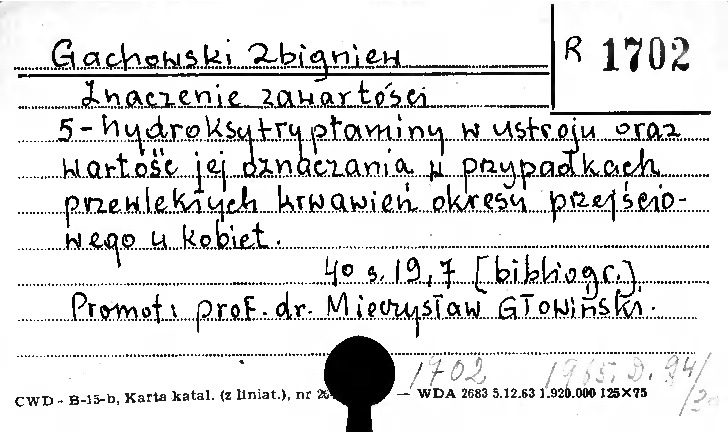 Gachowski Zbigniew
R 1702
Znaczenie zawartości
5-hydroksytryptaminy w ustroju oraz
wartość jej oznaczania w przypadkach
przewlekłych krwawień okresu przejścio-
wego u kobiet.
40 s. 19, 7 [bibliogr.]
Promot: prof. dr. Mieczysław Głowiński.
1702 1965. D. 94/
CWD - B-15-b, Karta katal. (z liniat.), nr — WDA 2683 5.12.63 1.920.000 125×75